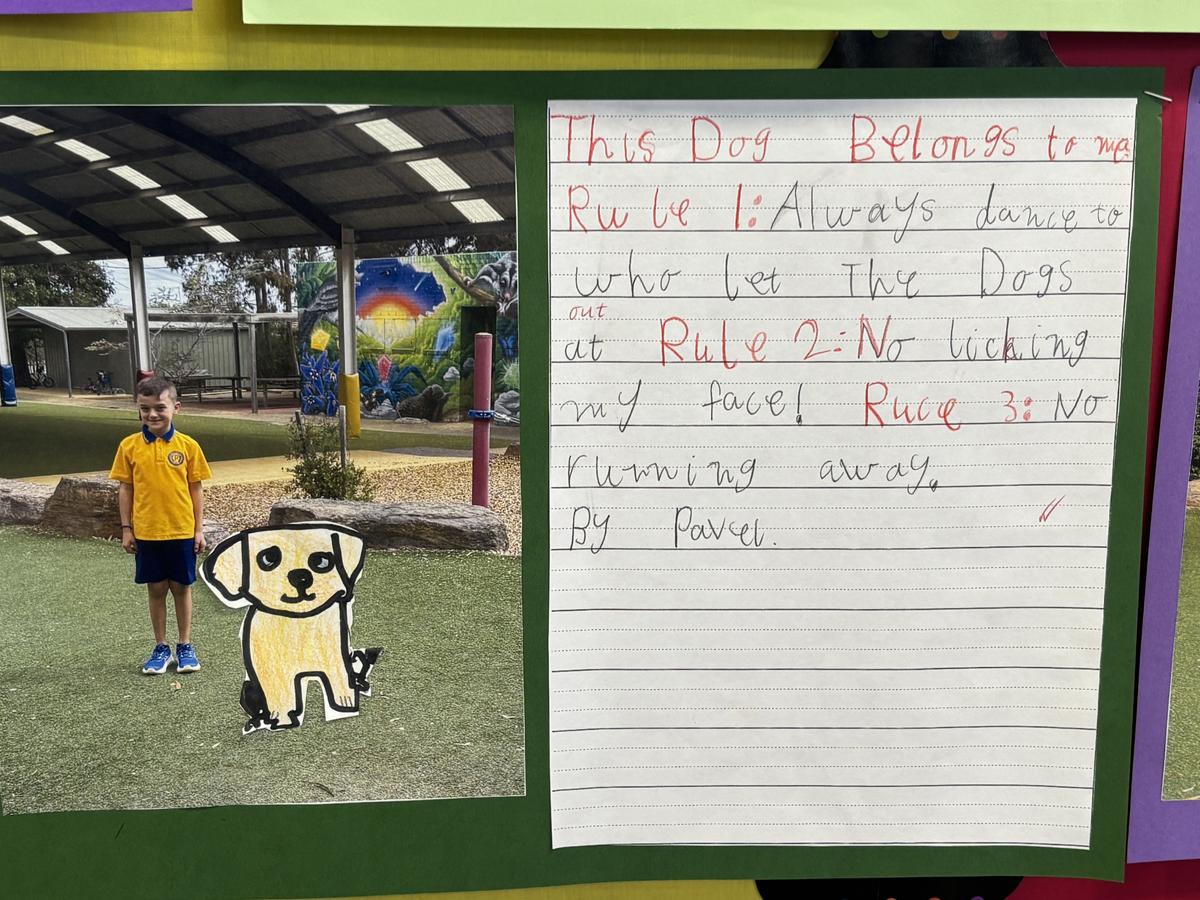 This Dog Belongs to me
Rule 1: Always dance to
who let The Dogs
out
at Rule 2: No licking
my face! Ruce 3: No
running away.
By Pavel.